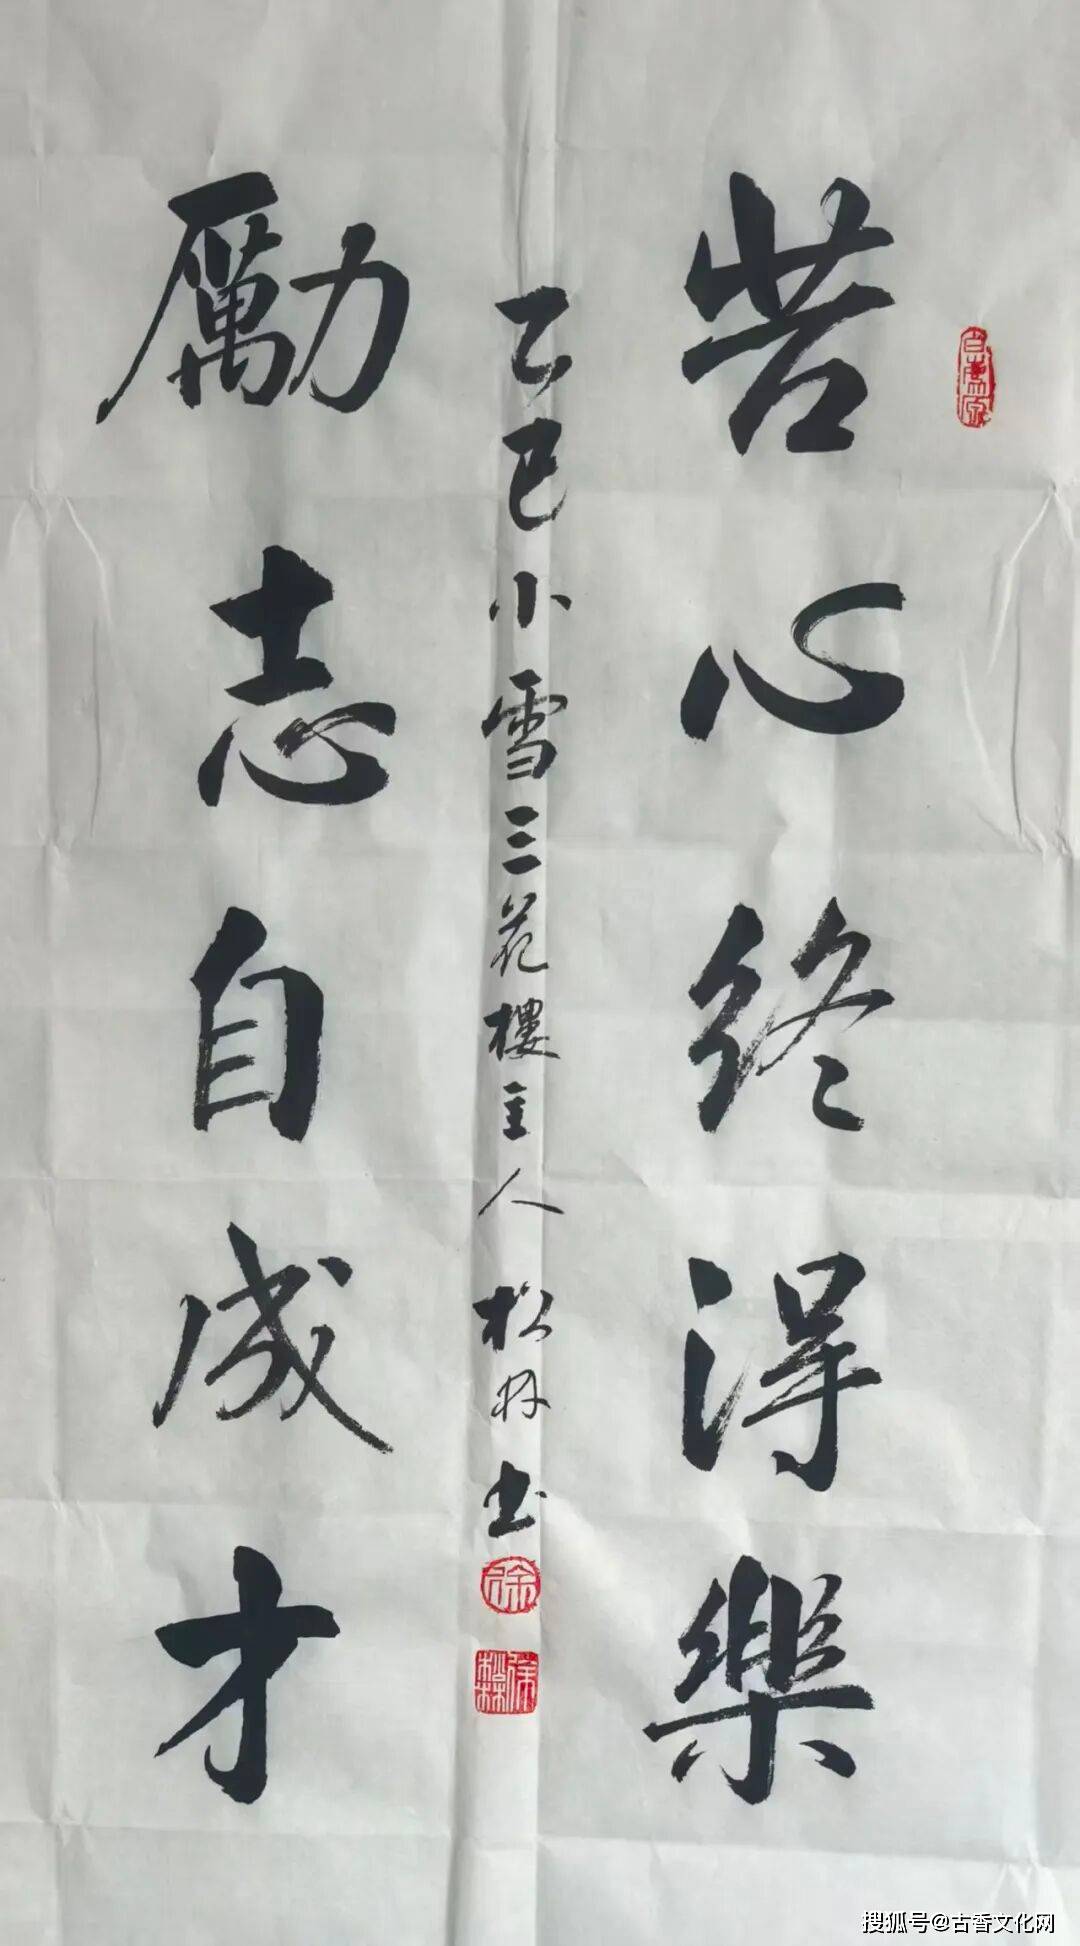 苦心终得樂
乙巳小雪三花樓主人松林书
勵志自成才
搜狐号@古香文化网